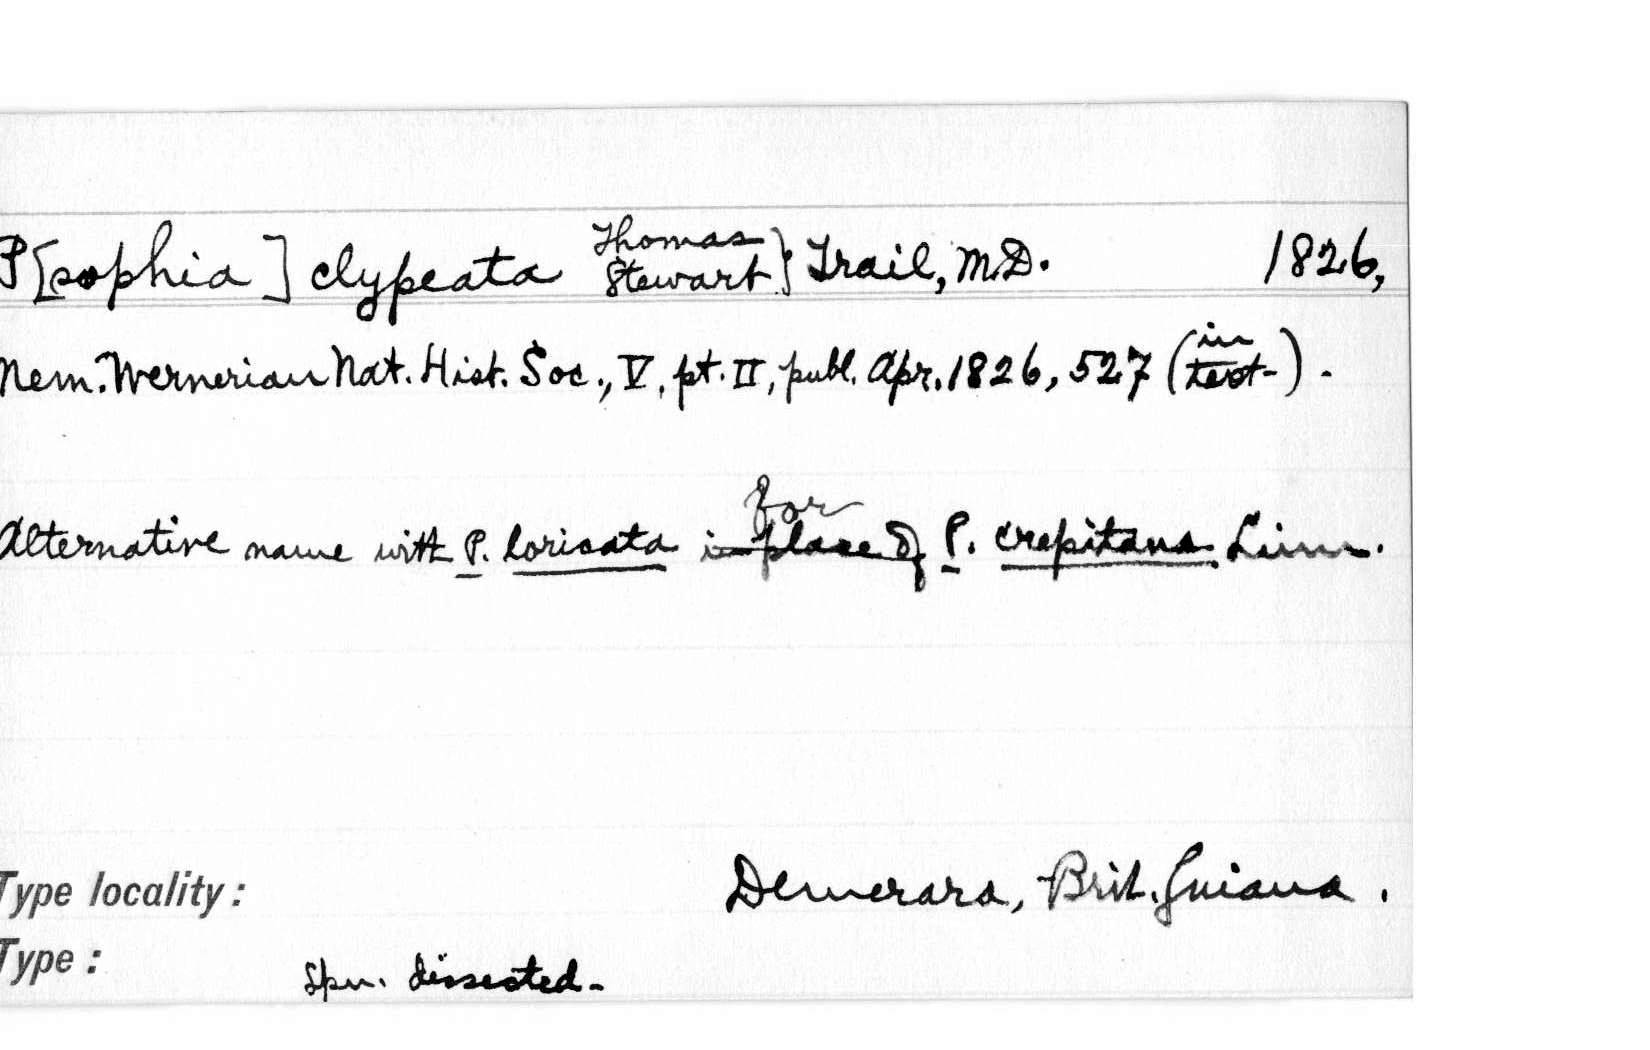 P[sophia] clypeata Thomas Stewart} Trail, M.D. 1826,
Mem. Wernerian Nat. Hist. Soc., V, pt. II, publ. Apr. 1826, 527 (in text).
Alternative name with P. loricata in place of for P. crepitans Linn.
Type locality: Demerara, Brit. Guiana.
Type: Spn. dissected.